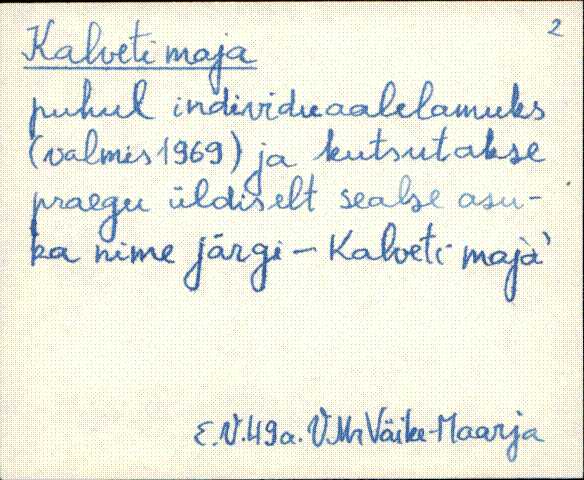 2
Kalveti maja
puhul individuaalelamuks
(valmis 1969) ja kutsutakse
praegu üldiselt sealse asu-
ka nime järgi – Kalveti maja'
E.V. 49a. V.Mr Väike-Maarja